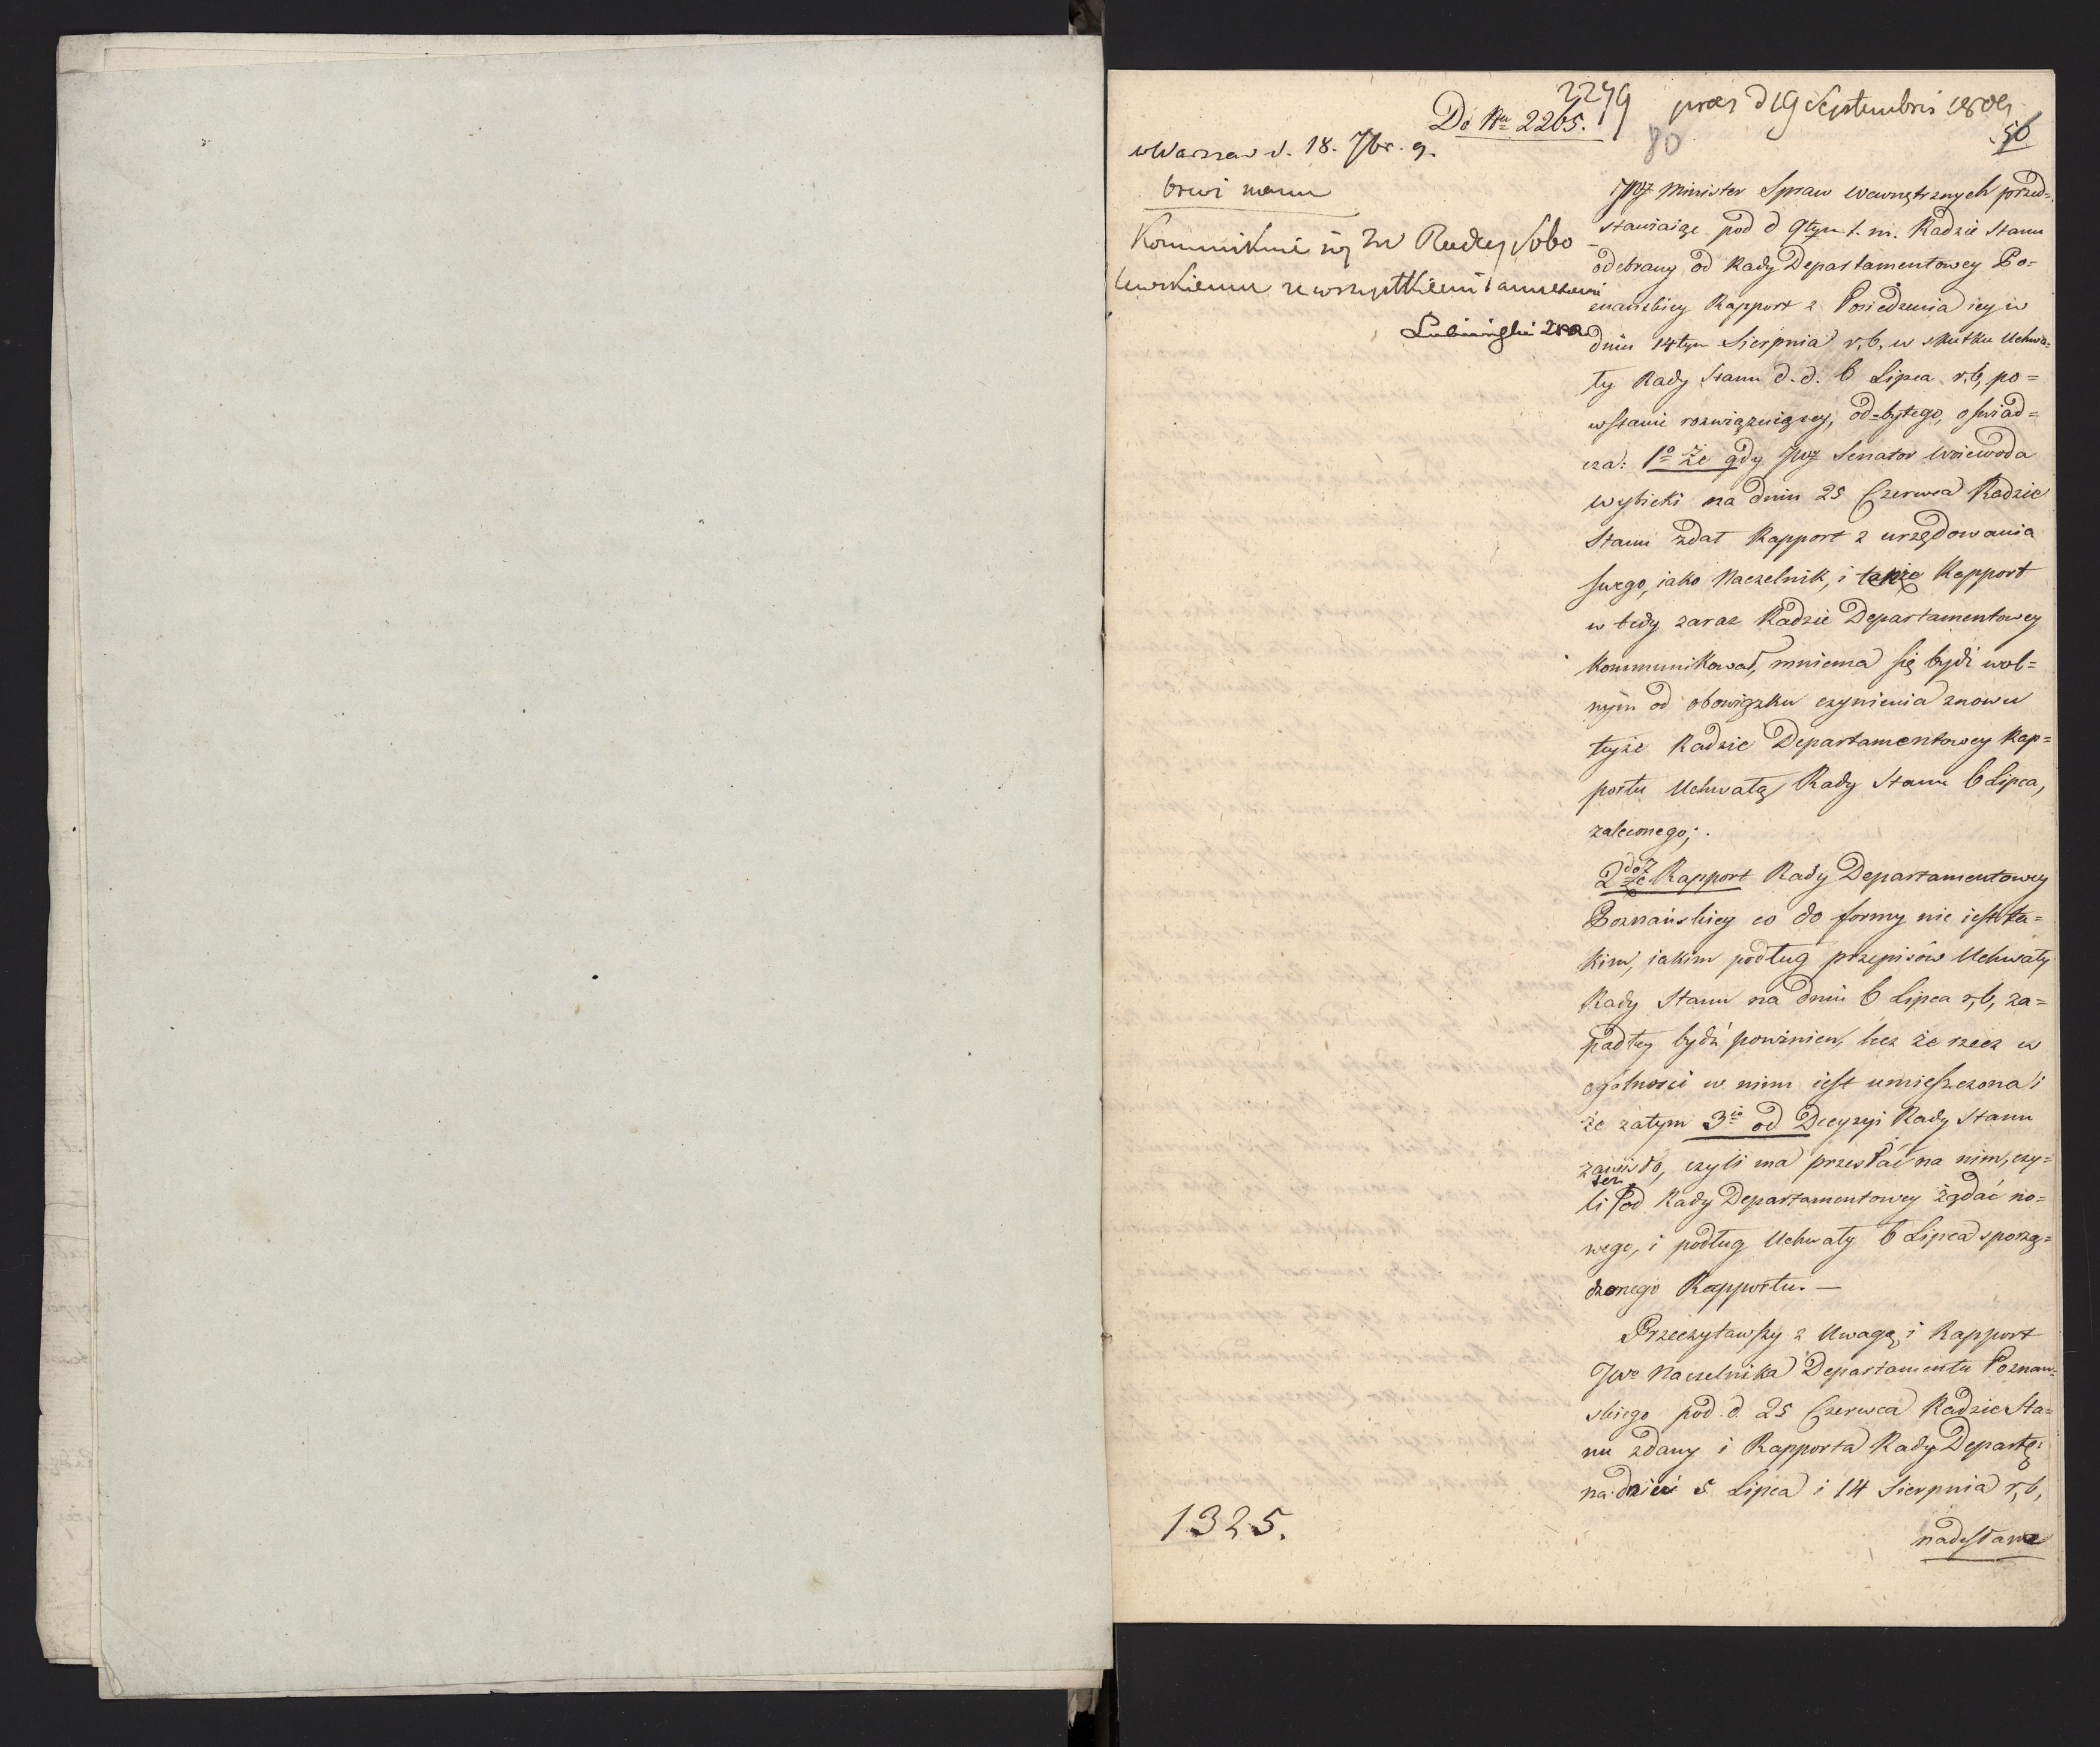 2279
Do Nru 2265.
praes d 19 Septembris 1809
80
56
w Warszaw d. 18. 7br. 9.
brevi manu
Kommunikuie się JW Radcy Sobo
lewskiemu ze wszystkiemi annexami
JWJ Minister Spraw Wewnętrznych przed=
stawiaiąc pod d 9tym t. m. Radzie Stanu
odebrany od Rady Departamentowey Po=
znańskiey Rapport z Posiedzenia iey w
dniu 14tym Sierpnia r, b, w skutku Uchwa=
ły Rady Stanu d. d. 6 Lipca r, b, po=
wstanie rozwiązuiącey, od=bytego, oświad=
cza: 1o że gdy JWJ Senator Woiewoda
Wybicki na dniu 25 Czerwca Radzie
Stanu zdał Rapport z urzędowania
swego, iako Naczelnik, i tenże Rapport
w tedy zaraz Radzie Departamentowey
kommunikował, mniema się bydź wol=
nym od obowiązku czynienia znowu
teyże Radzie Departamentowey Rap=
portu Uchwałą Rady Stanu 6 Lipca,
zaleconego;
2do że Rapport Rady Departamentowey
Poznańskiey co do formy nie iest ta=
kim, iakim podług przepisów Uchwały
Rady Stanu na dniu 6 Lipca r, b, za=
padłey bydź powinien, lecz że rzecz w
ogólności w nim iest umieszczona i
że zatym 3io od Decyzyi Rady Stanu
zawisło, czyli ma przestać na nim, czy=
li też od Rady Departamentowey żądać no=
wego, i podług Uchwały 6 Lipca sporzą=
dzonego Rapportu. —
Przeczytawszy z Uwagą i Rapport
JWo Naczelnika Departamentu Poznań=
skiego pod d. 25 Czerwca Radzie Sta=
nu zdany i Rapporta Rady Departą:
na dniu 5 Lipca i 14 Sierpnia r, b,
nadesłane
1325.